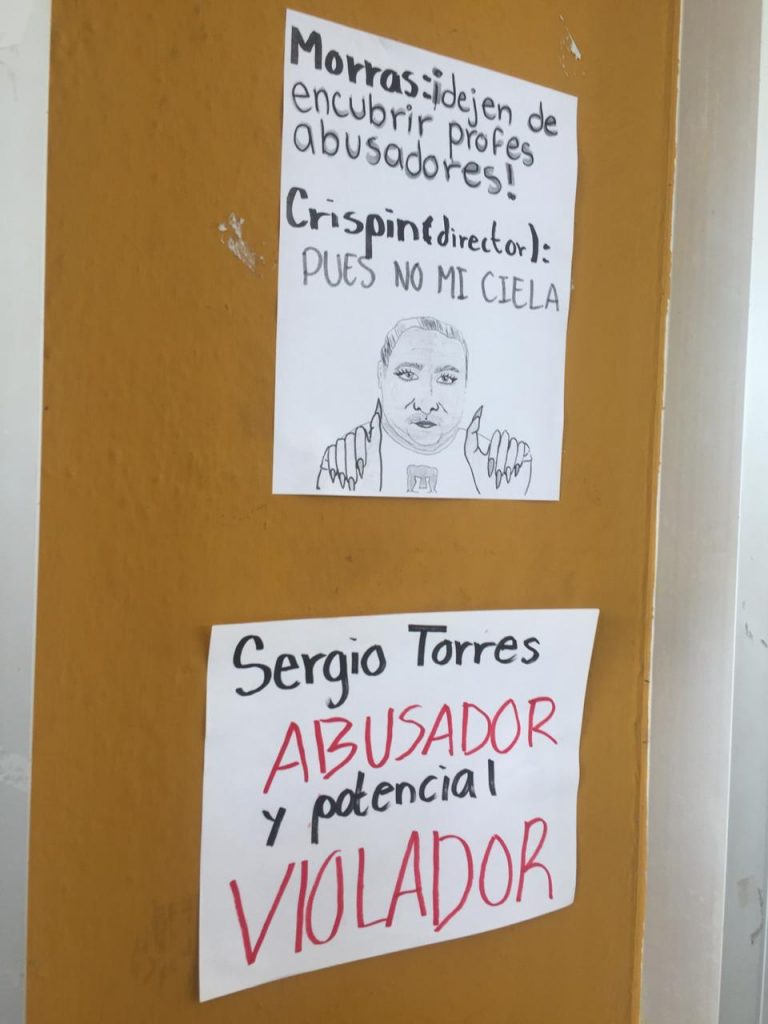 Morras:¡dejen de
encubrir profes
abusadores!
Crispin(director):
PUES NO MI CIELA
Sergio Torres
ABUSADOR
y potencial
VIOLADOR